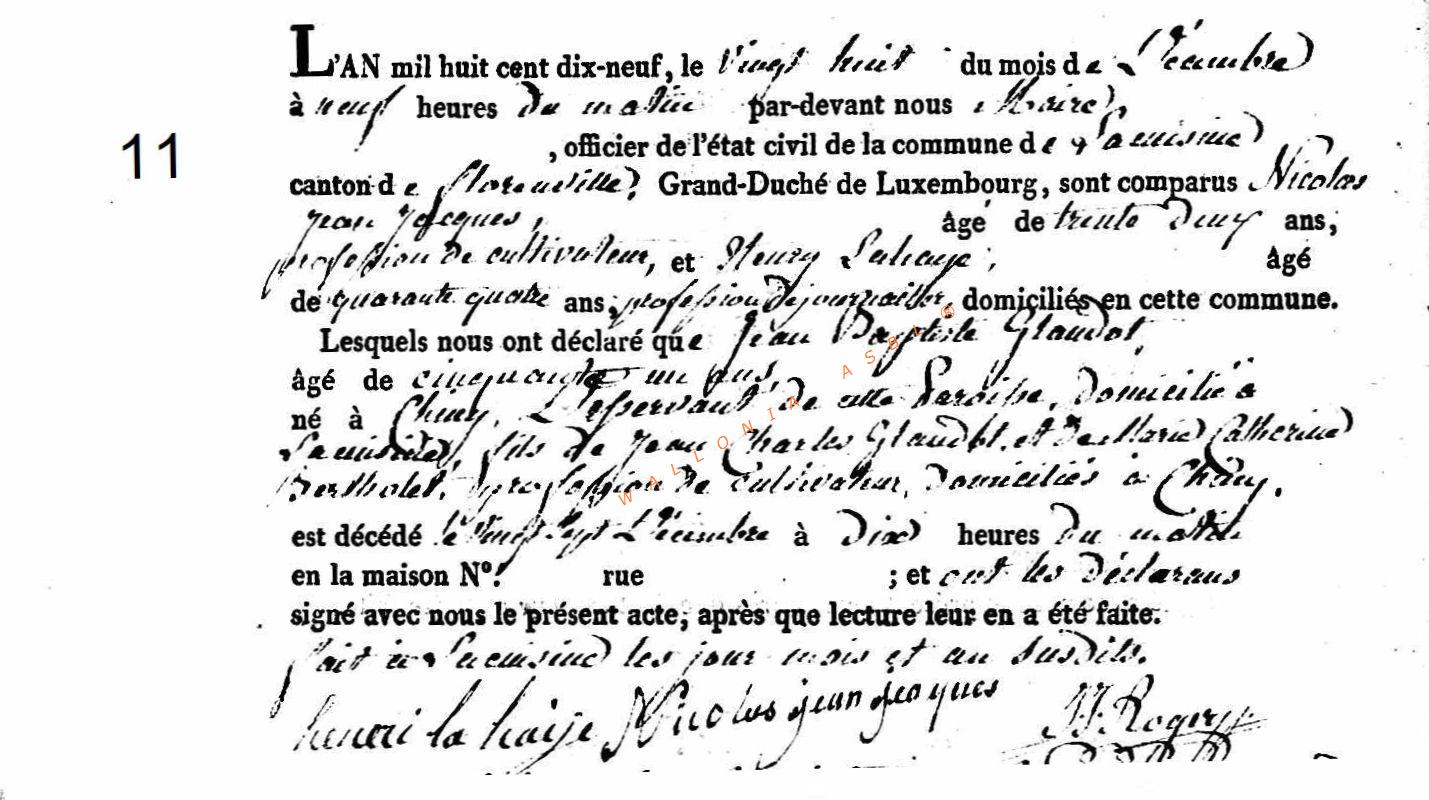 L'AN mil huit cent dix-neuf, le Vingt huit du mois de Décembre
à neuf heures du matin par-devant nous Maire,
11
, officier de l'état civil de la commune de Lacuisine
canton de florenville, Grand-Duché de Luxembourg, sont comparus Nicolas
jean jacques, âgé de trente deux ans,
profession de cultivateur, et Henry Lahaye, âgé
de quarante quatre ans, profession de journailler, domiciliés en cette commune.
Lesquels nous ont déclaré que Jean Baptiste Glaudot,
âgé de cinquante un ans,
né à Chiny, Desservant de cette Paroisse, domicilié à
Lacuisine, fils de Jean Charles Glaudot, et de Marie Catherine
Bertholet, profession de cultivateur, domiciliés à Chiny,
est décédé le Vingt Sept Décembre à dix heures du matin
en la maison N°. rue ; et ont les déclarans
signé avec nous le présent acte, après que lecture leur en a été faite.
fait à Lacuisine les jour mois et an susdits.
henri la haije Nicolas jean jacques J.J. Rogery
WALLONIA ASBL ©